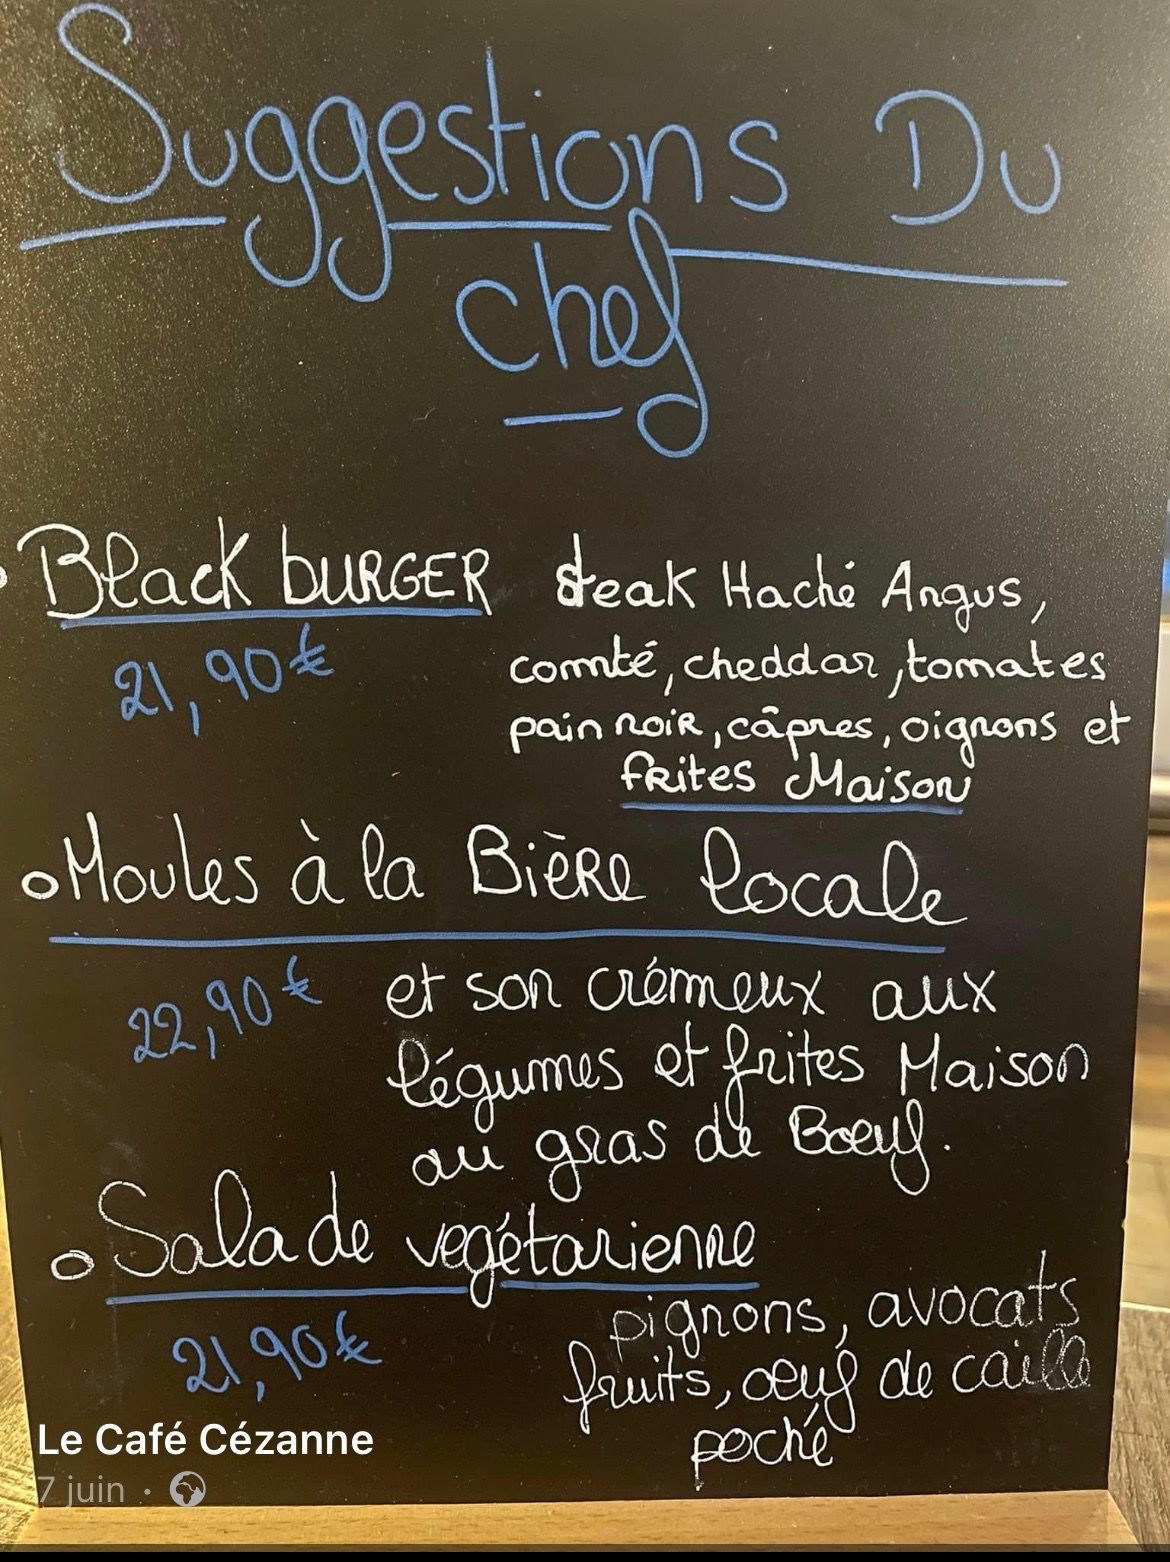 Suggestions Du
chef
Black bURGER
steak Haché Angus,
comté, cheddar, tomates
pain noir, câpres, oignons et
frites Maison
21,90€
Moules à la Bière locale
22,90€
et son crémeux aux
légumes et frites Maison
au gras de Boeuf.
Salade vegétarienne
21,90€
pignons, avocats
fruits, oeuf de caille
poché
Le Café Cézanne
7 juin ·